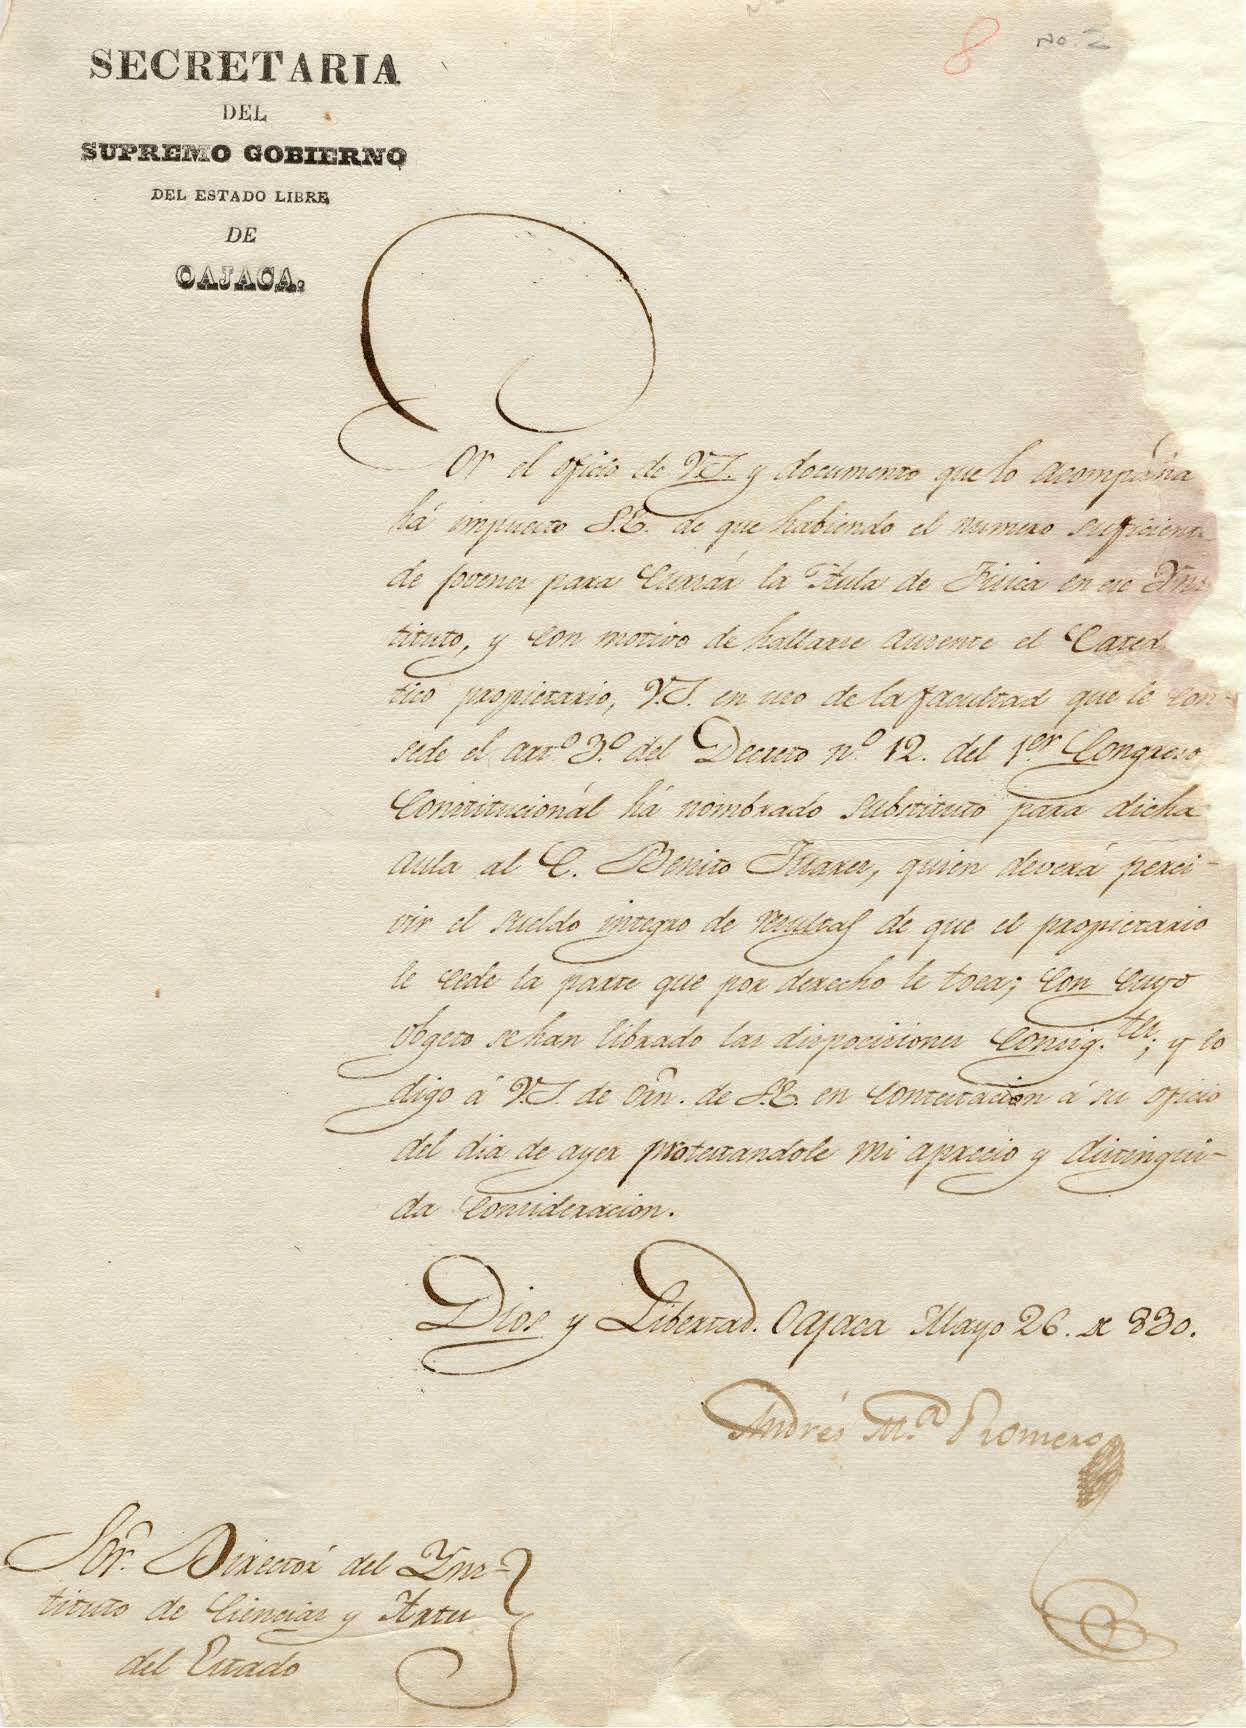 8 No. 2
SECRETARIA
DEL
SUPREMO GOBIERNO
DEL ESTADO LIBRE
DE
OAJACA.
Por el oficio de V.S. y documento que lo acompáña
há impuesto S.E. de que habiendo el numero suficiente
de jovenes para cursár la Aula de Fisica en ese Yns
tituto, y con motivo de hallarse ausente el Cated
tico propietario, V.S. en uso de la facultad que le con
sede el art.o 3.o del Decreto n.o 12. del 1.er Congreso
Constitucionál há nombrado substituto para dicha
aula al C. Benito Juares, quien deverá perci-
vir el sueldo integro de resultas de que el propietario
le cede la parte que por derecho le toca; con cuyo
obgeto se han librado las disposiciones consig.tes; y lo
digo á V.S. de orn. de S.E. en contestacion á su oficio
del dia de ayer protestandole mi aprecio y distingui-
da consideracion.
Dios y Libertad. Oajaca Mayo 26. de 830.
Andrés M.a Romero
Sor. Directór del Yns-
tituto de Ciencias y Artes
del Estado